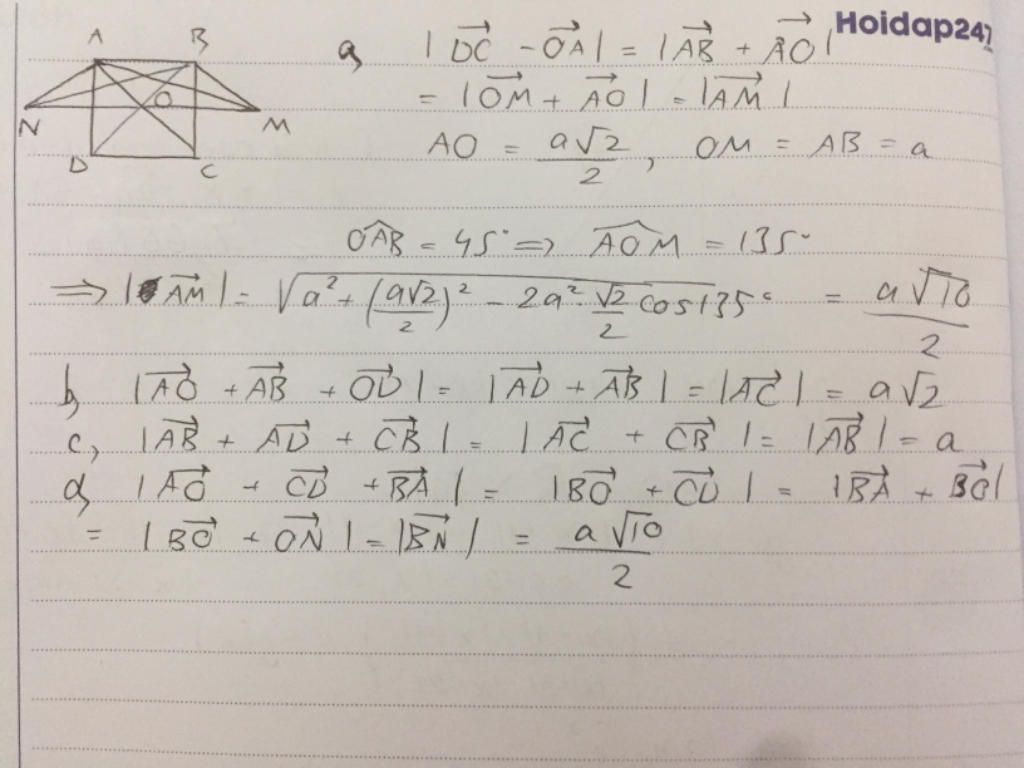 Hoidap247
A B
O
N M
D C
a, |DC⃗ - OA⃗| = |AB⃗ + AO⃗|
= |OM⃗ + AO⃗| = |AM⃗|
AO = a√2/2, OM = AB = a
OAB = 45° => AOM = 135°
=> |AM⃗| = √(a² + (a√2/2)² - 2a²·√2/2 cos135°) = a√10/2
b, |AO⃗ + AB⃗ + OD⃗| = |AD⃗ + AB⃗| = |AC⃗| = a√2
c, |AB⃗ + AD⃗ + CB⃗| = |AC⃗ + CB⃗| = |AB⃗| = a
d, |AO⃗ + CD⃗ + BA⃗| = |BO⃗ + CD⃗| = |BA⃗ + BO⃗|
= |BO⃗ + ON⃗| = |BN⃗| = a√10/2